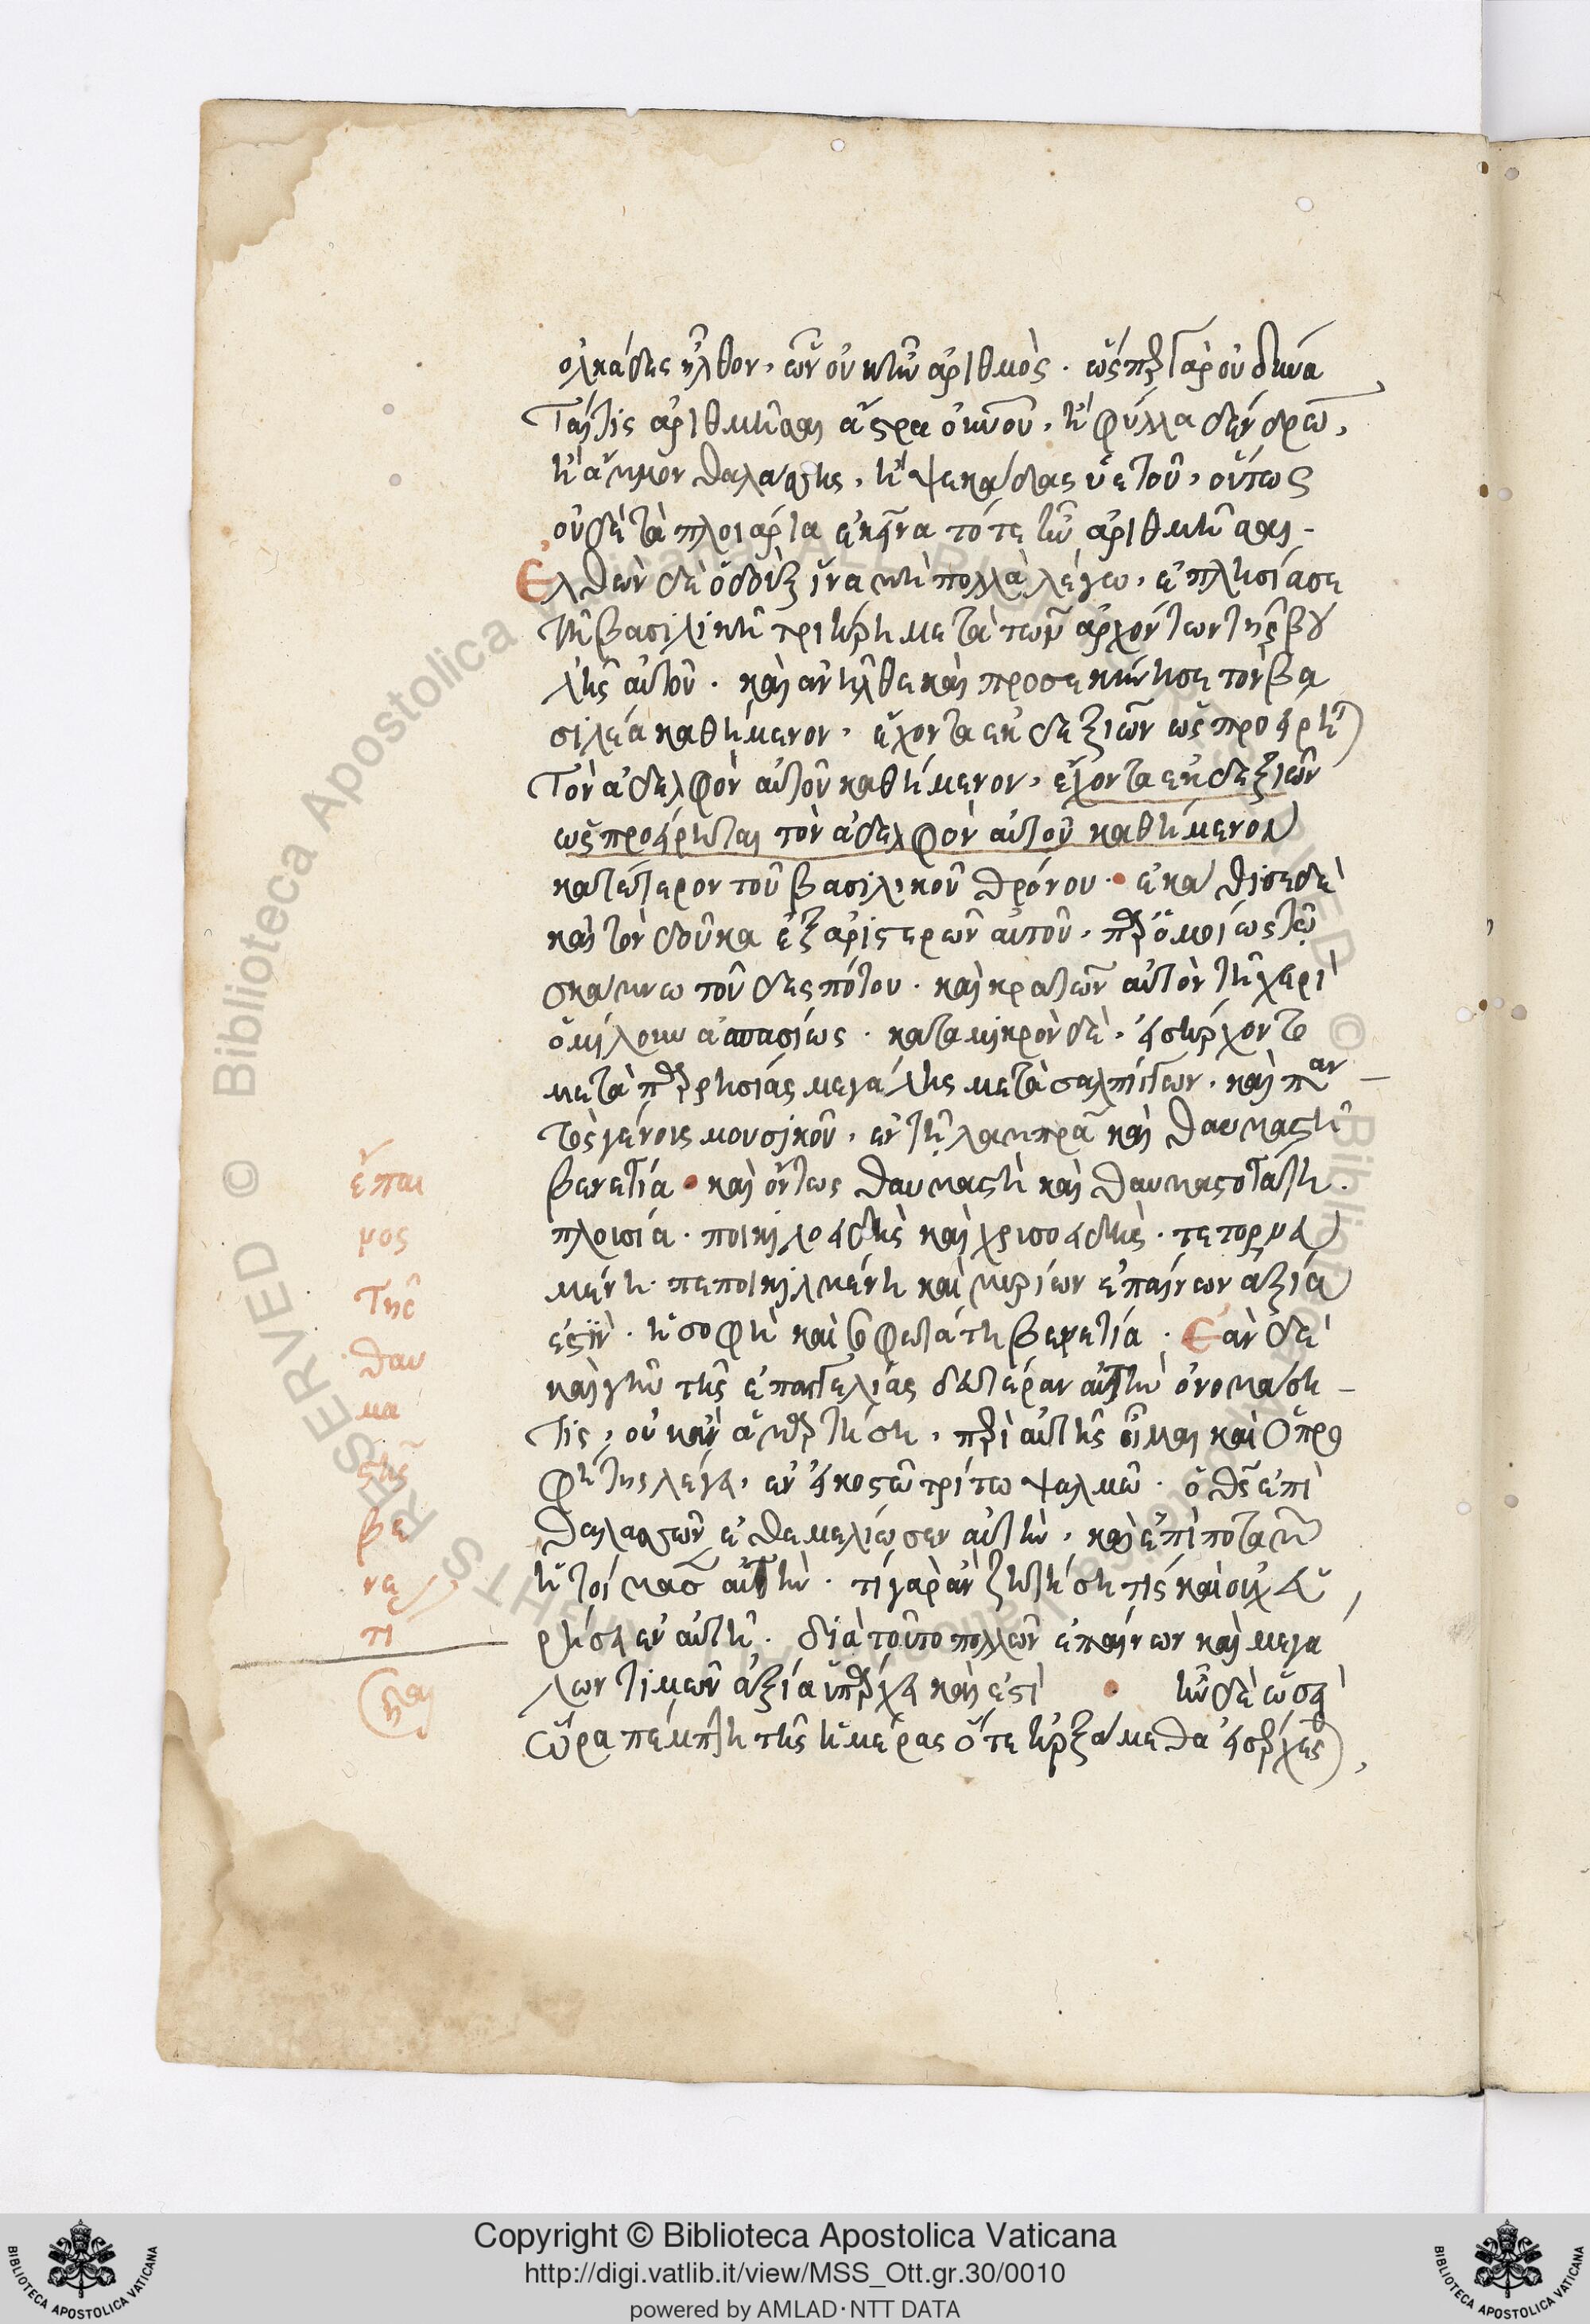 ὁλκάδες ἦλθον, ὧν οὐκ ἦν ἀριθμὸς. ὥσπερ γὰρ οὐ δύνα
ταί τις ἀριθμῆσαι ἄστρα οὐνοῦ, ἢ φύλλα δένδρων,
ἢ ἄμμον θαλάσσης, ἢ ψεκάδας ὑετοῦ, οὕτως
οὐδὲ τὰ πλοιάρια ἐκεῖνα τότε ἦν ἀριθμῆσαι.
Ἐλθὼν δὲ ὁ δοὺξ ἵνα μὴ πολλὰ λέγω, ἐπλησίασε
τῆ βασιλικῆ τριήρη μετὰ τῶν ἀρχόντων τῆς βου
λῆς αὐτοῦ. καὶ ἀνῆλθε καὶ προσεκύνησε τὸν βα
σιλέα καθήμενον, ἔχοντα ἐκ δεξιῶν ὡς προείρη
τὸν ἀδελφὸν αὐτοῦ καθήμενον, ἔχοντα ἐκ δεξιῶν
ὡς προείρηται τὸν ἀδελφὸν αὐτοῦ καθήμενον
κατώτερον τοῦ βασιλικοῦ θρόνου. ἐκάθισε δὲ
καὶ τὸν δοῦκα ἐξ ἀριστερῶν αὐτοῦ, παρόμοίως τῶ
σκάμνω τοῦ δεσπότου. καὶ κρατῶν αὐτὸν τῆ χειρὶ
ὁμίλουν ἀσπασίως. κατὰ μικρὸν δὲ, εἰσήρχοντο
μετὰ παρρησίας μεγάλης μετὰ σαλπίγγων, καὶ παν
τὸς γένους μουσικοῦ, ἐν τῆ λαμπρᾶ καὶ θαυμαστῆ
βενετία. καὶ ὄντως θαυμαστὴ καὶ θαυμαστοτάτη.
πλουσία. ποικιλοειδὴς καὶ χρισοειδὴς. τετορνευ
μένη. πεποικιλμένη καὶ μυρίων ἐπαίνων ἀξία
ἐστὶν. ἡ σοφὴ καὶ σοφωτάτη βενετία. Ἐὰν δὲ
καὶ γῆν τῆς ἐπαγγελίας δευτέραν αὐτὴν ὀνομάση
τις, οὐκ ἂν ἁμαρτήση, περὶ αὐτῆς οἶμαι καὶ ὁ προ
φήτης λέγει, ἐν εἰκοστῶ τρίτω ψαλμῶ. ὁ θς ἐπὶ
θαλασσῶν ἐθεμελίωσεν αὐτὴν, καὶ ἐπὶ ποταμῶν
ἡτοίμασεν αὐτὴν. τί γὰρ ἂν ζητήση τίς καὶ οὐχ εὑ
ρήσει ἐν αὐτῆ. διὰ τοῦτο πολλῶν ἐπαίνων καὶ μεγά
λων τιμῶν ἀξία ὑπάρχει καὶ ἐστὶ ἦν δὲ ὡσεὶ
ὥρα πέμπτη τῆς ἡμέρας ὅτε ἠρξάμεθα εἰσέρχεσθ
ἔπαι
νος
τῆς
θαυ
μα
στῆς
βε
νε
τι
Copyright © Biblioteca Apostolica Vaticana
http://digi.vatlib.it/view/MSS_Ott.gr.30/0010
powered by AMLAD·NTT DATA